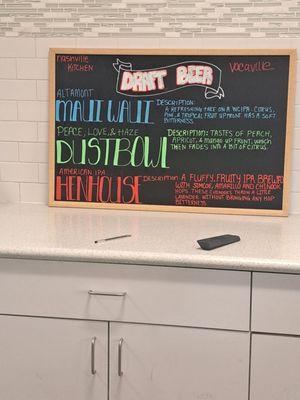 Nashville
Kitchen
DRAFT BEER
Vacaville
ALTAMONT
MAUI WAUI
DESCRIPTION:
A REFRESHING TAKE ON A NCIPA. CITRUS,
PINE, & TROPICAL FRUIT UPFRONT. HAS A SOFT
BITTERNESS
PEACE, LOVE, & HAZE
DUSTBOWL
DESCRIPTION: TASTES OF PEACH,
APRICOT, & MANGO UP FRONT, WHICH
THEN FADES INTO A BIT OF CITRUS.
AMERICAN IPA
HENHOUSE
DESCRIPTION: A FLUFFY, FRUITY IPA BREWED
WITH SIMCOE, AMARILLO AND CHINOOK
HOPS. THESE CHANGES THROW A LITTLE
LAVENDER WITHOUT BRINGING ANY HOP
BITTERNESS